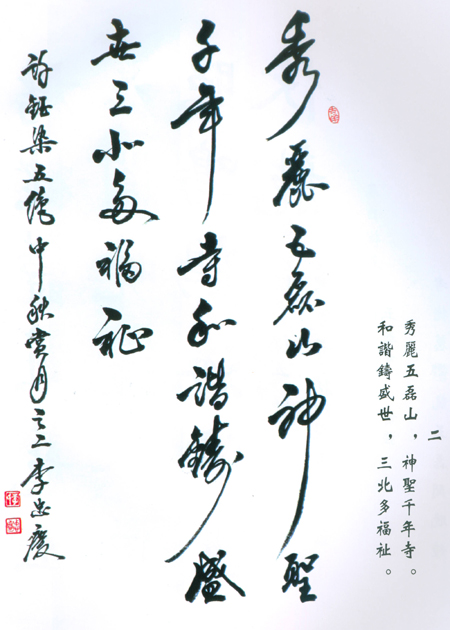 二
秀麗五磊山,神聖千年寺。
和諧鑄盛世,三北多福祉。
秀麗五磊山神聖
千年寺和諧鑄盛
世三北多福祉
許鈺梁五 中秋賞月之二李忠慶